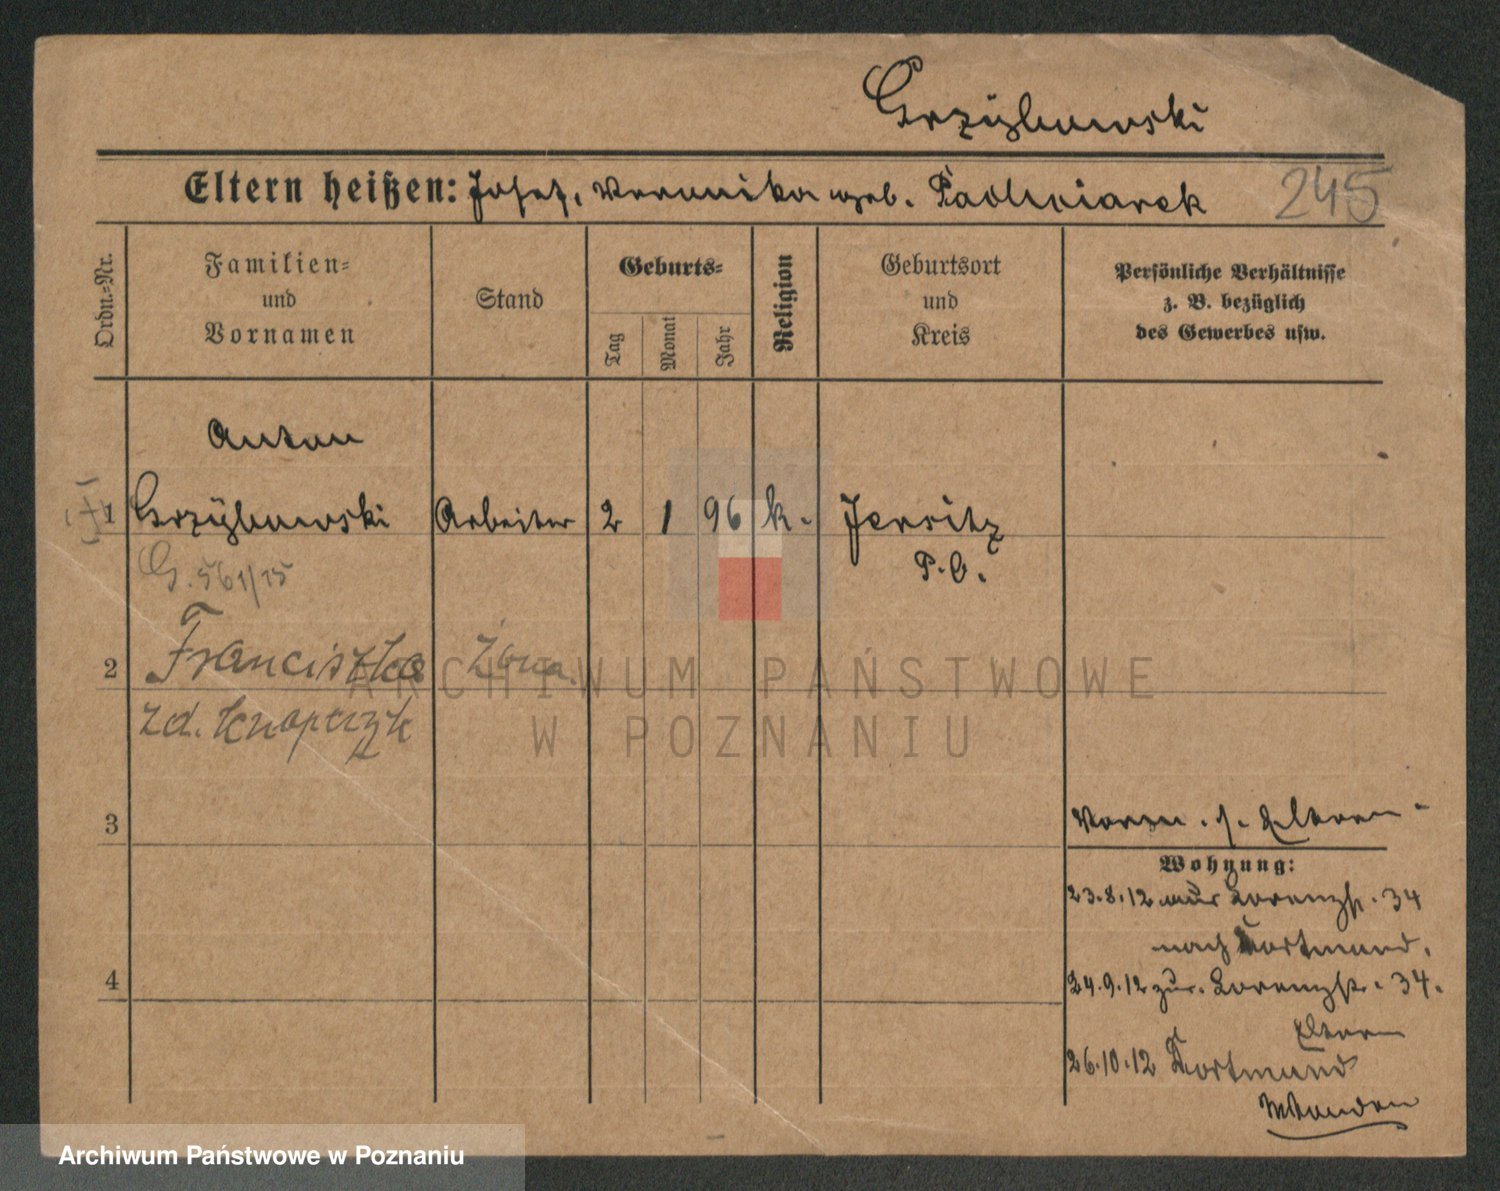 Grzÿbowski
Eltern heißen: Josef, Veronika geb. Pachciarek 245
Ordn.-Nr.
Familien-
und
Vornamen
Stand
Geburts-
Tag
Monat
Jahr
Religion
Geburtsort
und
Kreis
Persönliche Verhältnisse
z. B. bezüglich
des Gewerbes usw.
Anton
1 Grzÿbowski Arbeiter 2 1 96 k. Jersitz
P. O.
G. 561/15
2 Franciszka żona.
zd. Knapczyk
3
Vorm. s. Eltern
Wohnung:
23.8.12 aus Lorenzstr. 34
nach Dortmund.
4
24.9.12 zur. Lorenzstr. 34.
Eltern
26.10.12 Dortmund
ARCHIWUM PAŃSTWOWE
W POZNANIU
Archiwum Państwowe w Poznaniu